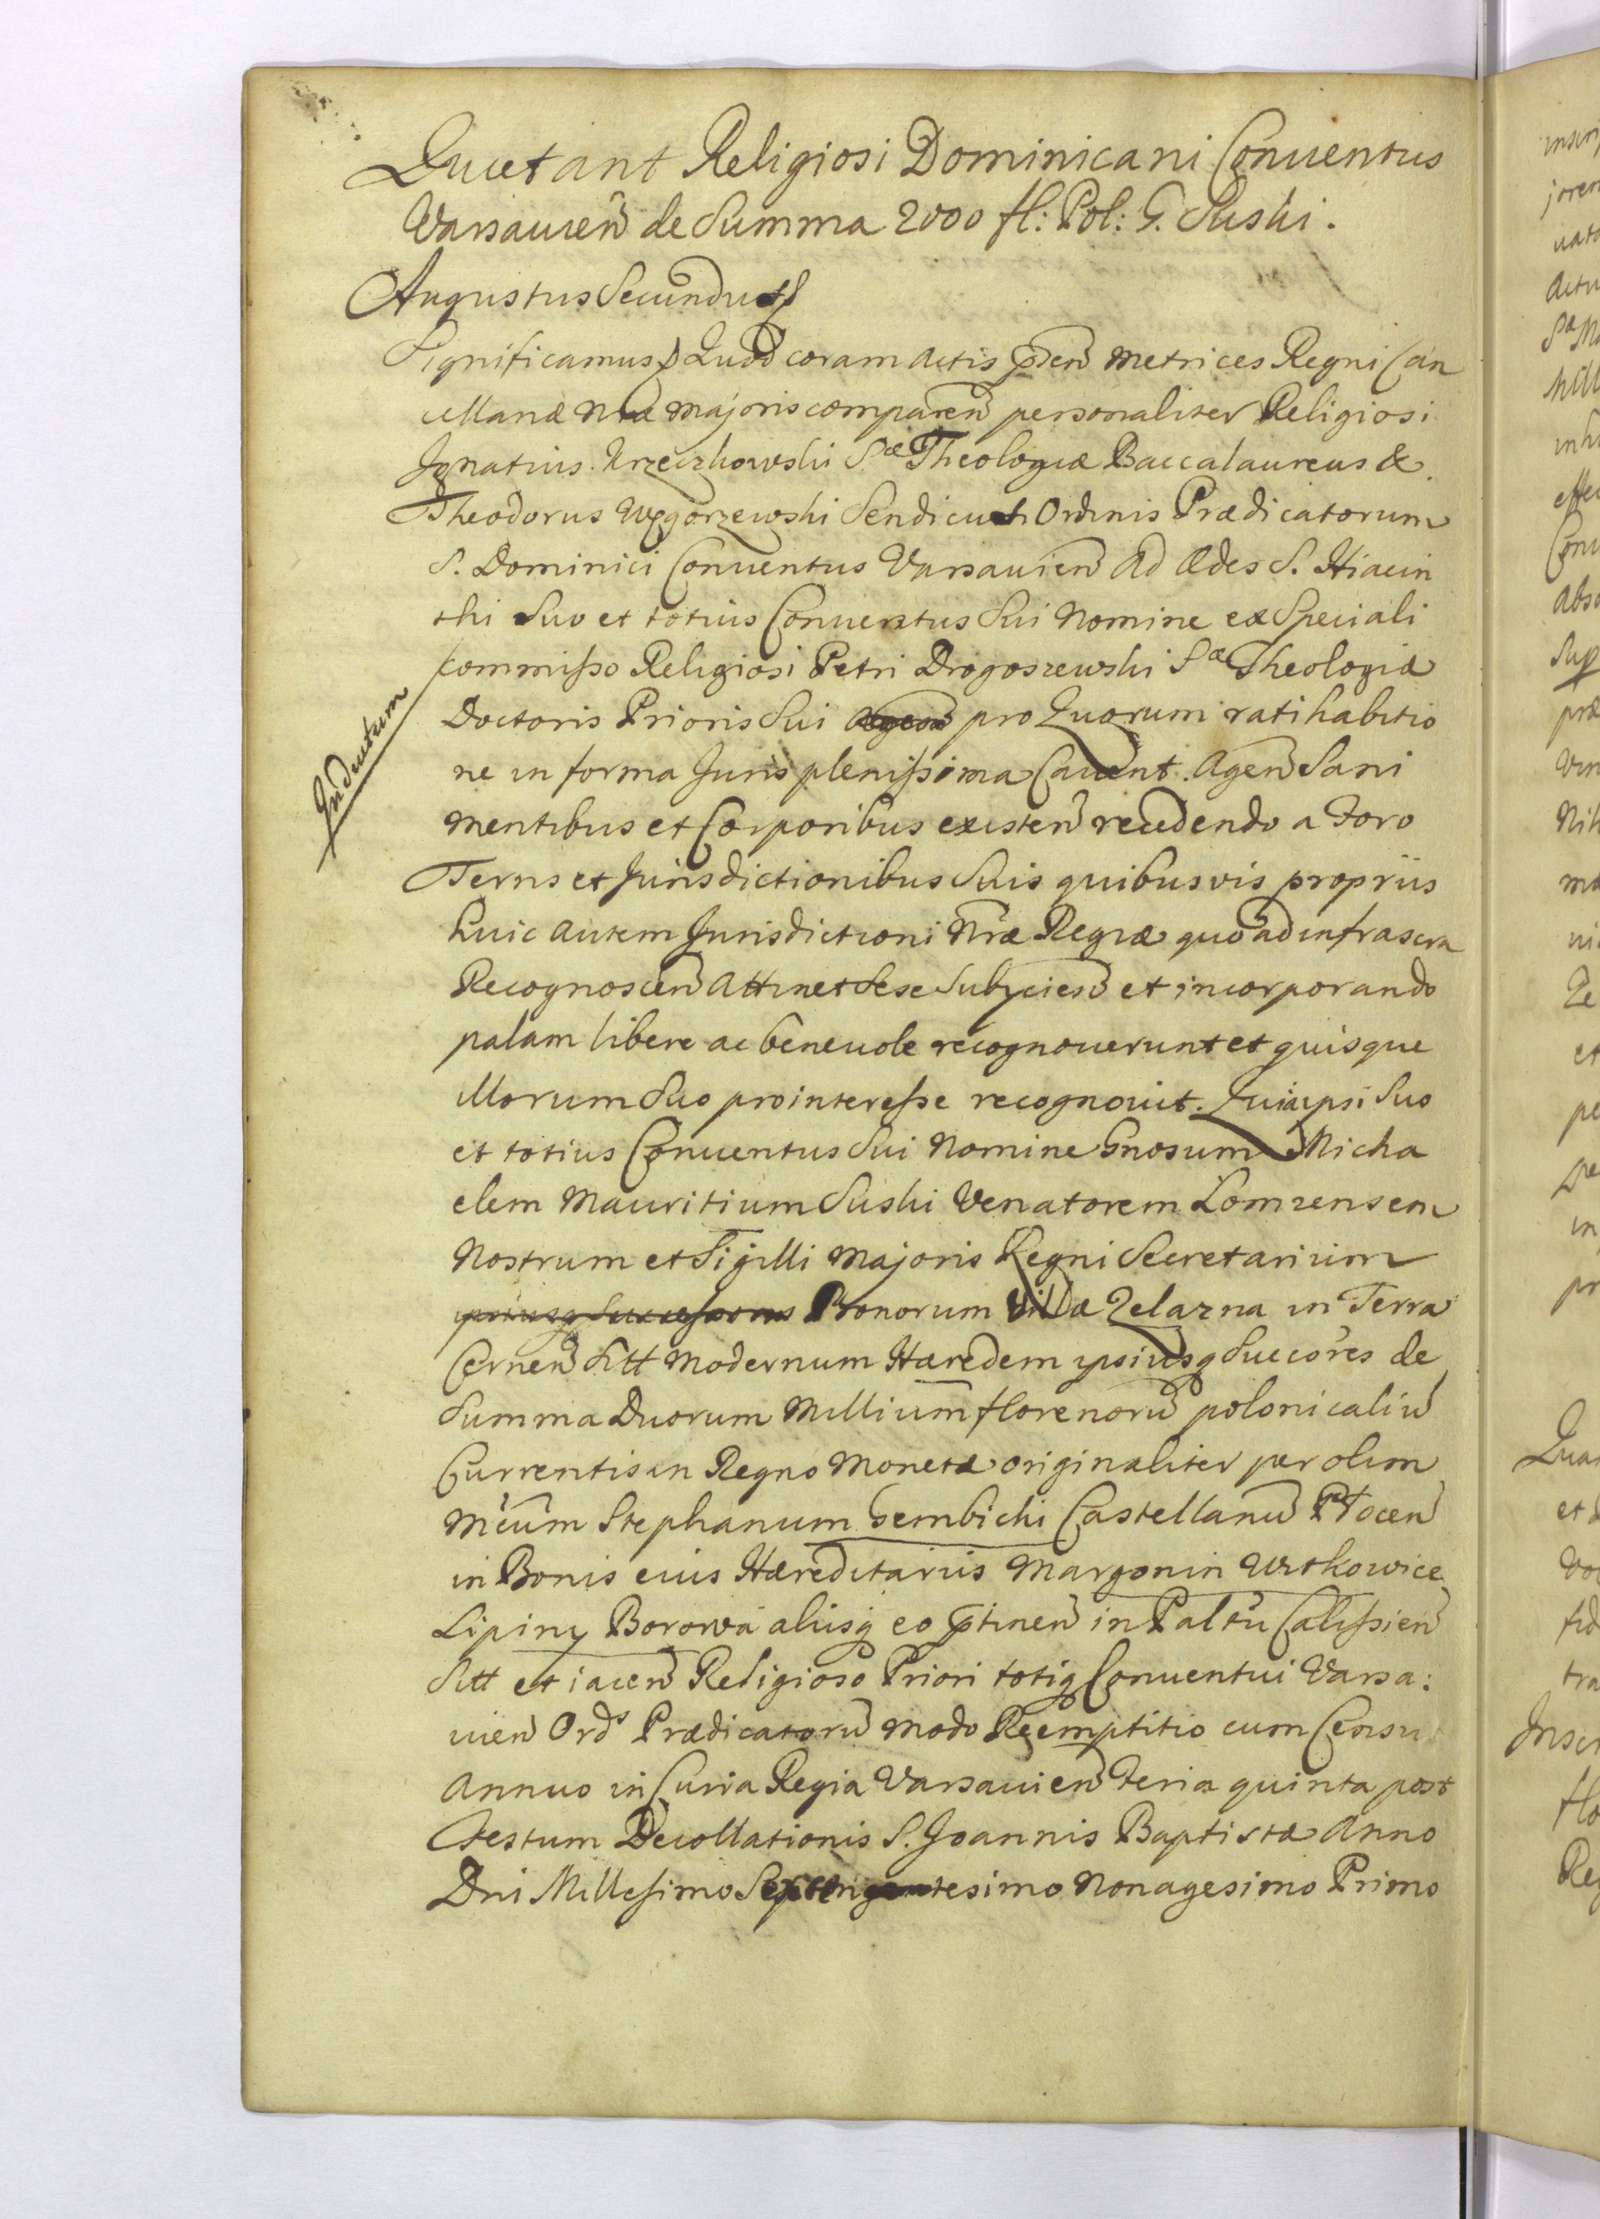 Quietant Religiosi Dominicani Conventus
Varsavień de Summa 2000 fl: Pol: G. Suski.
Augustus Secundus
Significamus Quod coram Actis pñtń Metrices Regni Can
cellariæ Nræ Majoris compareń personaliter Religiosi
Ignatius Krzeczkowski Sæ Theologiæ Baccalaureus &
Theodorus Węgorzewski Sendicus Ordinis Prædicatorum
S. Dominici Conventus Varsavień Ad Ædes S. Hiacin
thi Suo et totius Conventus Sui Nomine ex Speciali
commisso Religiosi Petri Drogoszewski Sæ Theologiæ
Doctoris Prioris Sui pro Quorum ratihabitio
ne in forma Juris plenissima Cavent. Ageń Sani
Mentibus et Corporibus existeń recedendo a Foro
Terris et Jurisdictionibus Suis quibusvis propriis
huic autem Jurisdictioni Nræ Regiæ quo ad infrascra
Recognosceń Attinet Sese Subycień et incorporando
palam libere ac benevole recognoverunt et quisque
illorum Suo pro interesse recognovit. Quia ipsi Suo
et totius Conventus Sui Nomine Gnosum Micha
elem Mauritium Suski Venatorem Lomzensem
Nostrum et Sigilli Majoris Regni Secretarium
Bonorum Villæ Zelazna in Terra
Cerneń Sitt Modernum Hæredem ipsiusq Succōres de
Summa Duorum Millium florenorū polonicaliū
Currentis in Regno Monetæ originaliter per olim
Mcūm Stephanum Gembicki Castellanū Ploceń
in Bonis eius Hæreditariis Margonin Witkowice
Lipiny Borowa aliisq eo ptineń in Paltū Calissień
Sitt et iaceń Religioso Priori totiq Conventui Varsa:
vień Ords Prædicatorū modo Reemptitio cum Censu
Annuo in Curia Regia Varsavień Feria quinta post
Festum Decollationis S. Joannis Baptistæ Anno
Dni Millesimo Nonagesimo Primo
Inductum